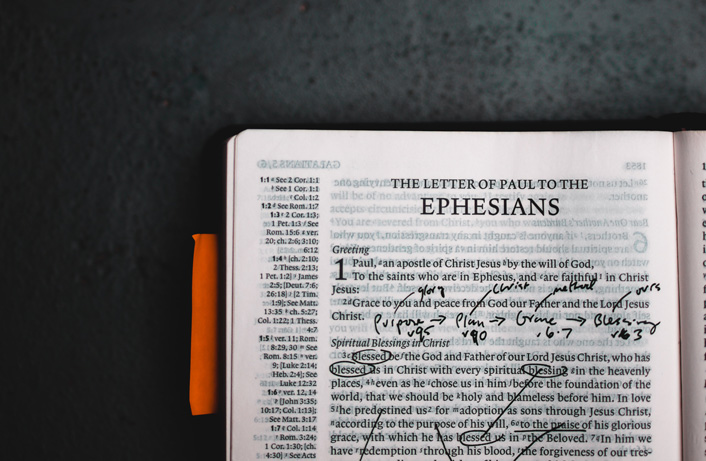 1:1 a See 2 Cor. 1:1
b See 1 Cor. 1:1
c Col. 1:2
1:2 d See Rom. 1:7
1:3 e 2 Cor. 1:3;
1 Pet. 1:3 f See
Rom. 15:6 g ver.
20; ch. 2:6; 3:10;
6:12
1:4 h [ch. 2:10;
2 Thess. 2:13;
1 Pet. 1:2] i James
2:5; [Deut. 7:6;
26:18] j [2 Tim.
1:9]; See Matt.
13:35 k ch. 5:27;
Col. 1:22; 1 Thess.
4:7
1:5 l ver. 11; Rom.
8:29, 30 m See
Rom. 8:15 n ver.
9; [Luke 2:14;
Heb. 2:4]; See
Luke 12:32
1:6 o ver. 12, 14
p [John 3:35;
10:17; Col. 1:13];
See Matt. 3:17
1:7 q Col. 1:14
r Rom. 3:24;
1 Cor. 1:30; [ch.
4:30] s See Acts
THE LETTER OF PAUL TO THE
EPHESIANS
Greeting
1 Paul, a an apostle of Christ Jesus b by the will of God,
To the saints who are in Ephesus, and c are faithful 1 in Christ
Jesus:
glory Christ method ours
2 d Grace to you and peace from God our Father and the Lord Jesus
Christ.
Purpose → Plan → Grace → Blessing
Spiritual Blessings in Christ
3 e Blessed be f the God and Father of our Lord Jesus Christ, who has
blessed us in Christ with every spiritual blessing g in the heavenly
places, 4 h even as he i chose us in him j before the foundation of the
world, that we should be k holy and blameless before him. In love
5 l he predestined us 2 for m adoption as sons through Jesus Christ,
n according to the purpose of his will, 6 o to the praise of his glorious
grace, with which he has blessed us in p the Beloved. 7 q In him we
have r redemption s through his blood, t the forgiveness of our tres-